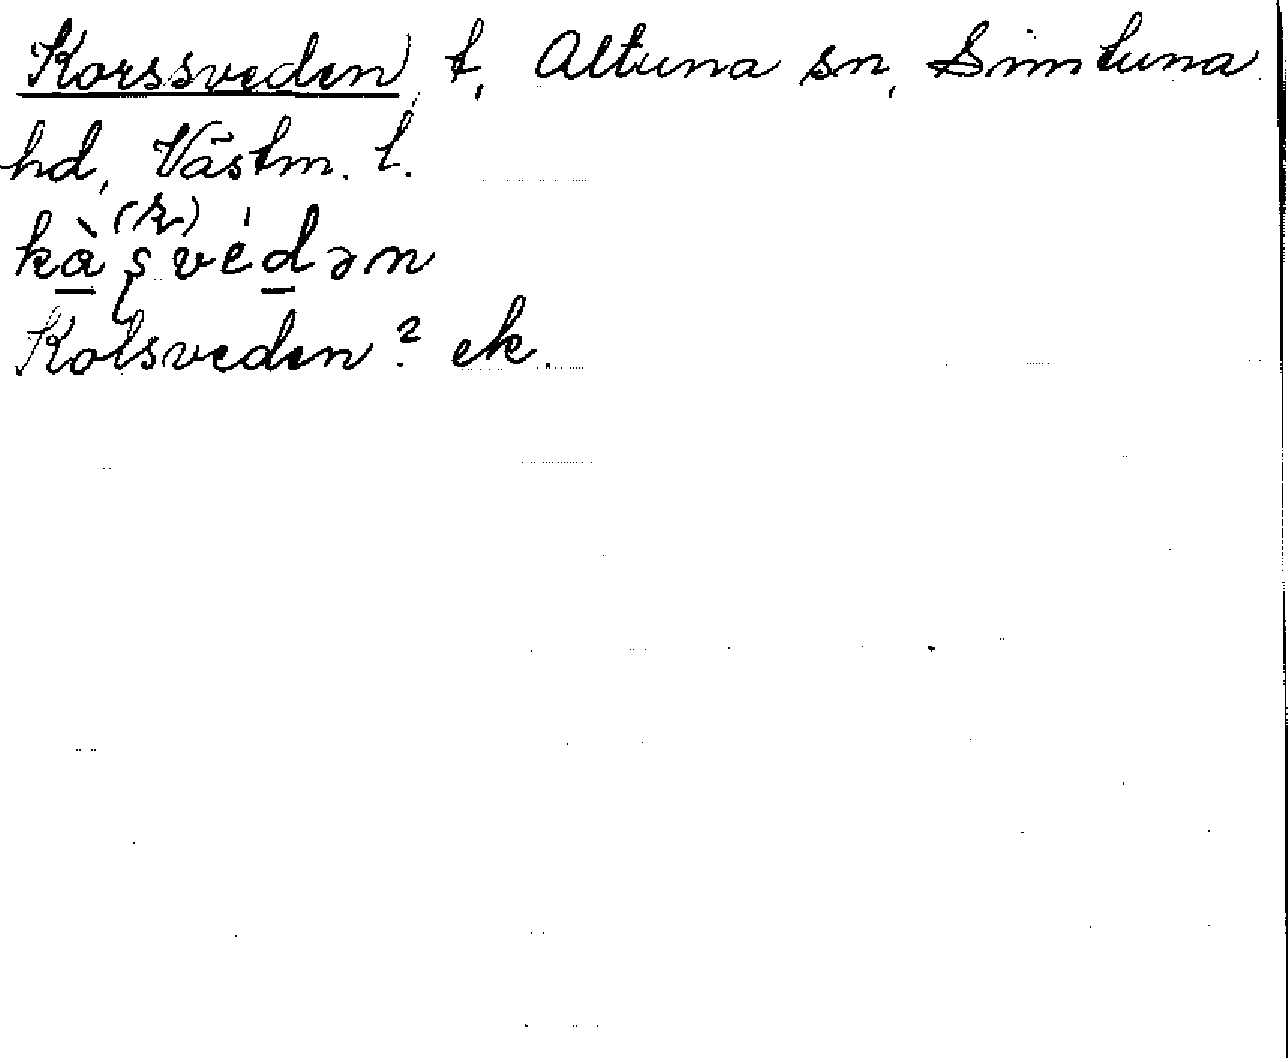 Korssveden, t, Altuna sn, Simtuna
hd, Västm. l.
kàʂ(r)védən
Kolsveden? ek.